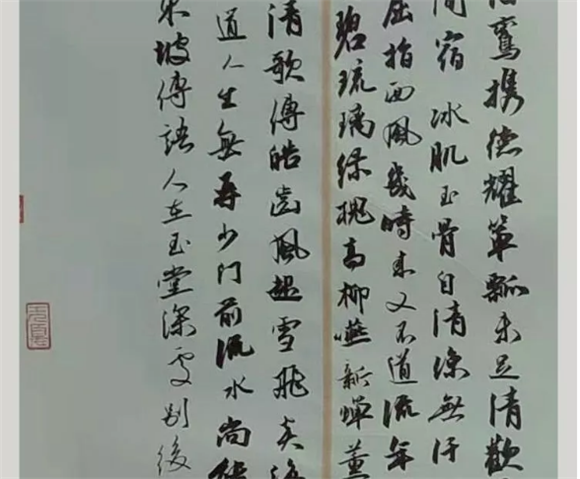 鸞携德耀箪瓢未足清歡
間宿 冰肌玉骨自清涼無汗
屈指西風幾時來又不道流年
碧琉璃緑槐高柳嚥新蟬薰
清歌傳皓齒風起雪飛炎海
道人生無再少门前流水尚能
東坡傳語人在玉堂深處别後